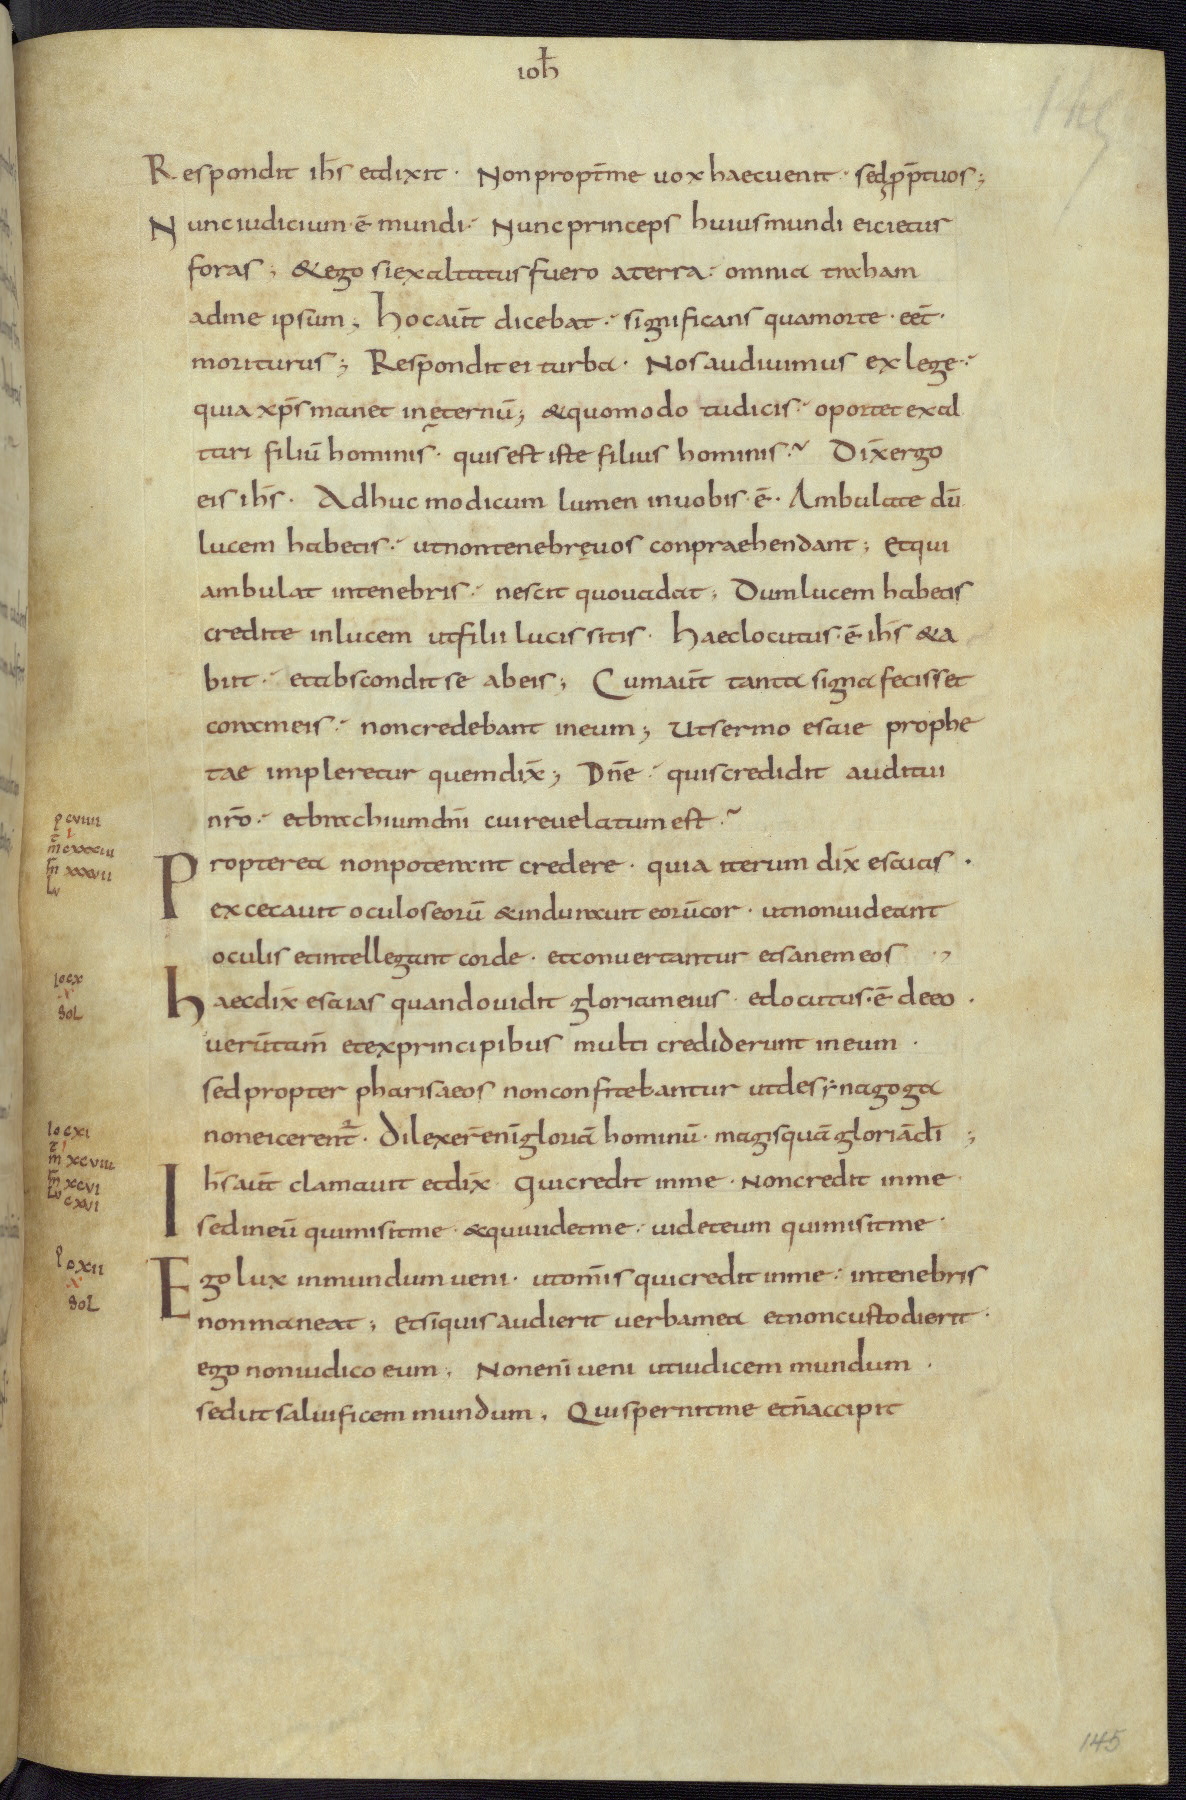 ioh̄
Respondit ih̄s etdixit · Non propt̄me uox haecuenit · sedp̄p̄tuos ;
Nunc iudicium · ē mundi · Nunc princeps huius mundi eicietur
foras ; & ego si exaltatus fuero a terra : omnia traham
adme ipsum ; hocaut̄ dicebat · significans qua morte · eēt ·
moriturus ; Respondit ei turba · Nos audiuimus ex lege ·
quia xp̄s manet in ęternū ; & quomodo tu dicis · oportet exal
tari filiū hominis · quis est iste filius hominis · Dix̄ ergo
eis ih̄s · Adhuc modicum lumen in uobis · ē · Ambulate dū
lucem habetis · ut non tenebrę uos conpraehendant ; Et qui
ambulat in tenebris · nescit quo uadat ; Dum lucem habetis
credite in lucem ut filii lucis sitis · haec locutus · ē ih̄s & a
biit · et abscondit se ab eis ; Cum aut̄ tanta signa fecisset
coram eis · non credebant in eum ; Ut sermo esaie prophe
tae impleretur quem dix̄ ; Dn̄e · quis credidit auditui
nr̄o · et brachium dn̄i cui reuelatum est ·
Propterea non poterant credere · quia iterum dix̄ esaias ·
excecauit oculos eorū & indurauit eorū cor · ut non uideant
oculis et intellegant corde · et conuertantur et sanem eos
haec dix̄ esaias quando uidit gloriam eius · et locutus · ē de eo ·
uerūtam̄ et ex principibus multi crediderunt in eum ·
sed propter pharisaeos non confitebantur ut de synagoga
non eicerent̄ · Dilexer̄ enī gloriā hominū · magis quā gloriā dī ;
Ih̄s aut̄ clamauit et dix̄ · Qui credit in me · Non credit in me ·
sed in eū qui misit me · & qui uidet me · uidet eum qui misit me ·
Ego lux in mundum ueni · ut om̄is qui credit in me · in tenebris
non maneat ; Et si quis audierit uerba mea et non custodierit ·
ego non iudico eum ; Non enī ueni ut iudicem mundum ·
sed ut saluificem mundum ; Qui spernit me et n̄ accipit
cviiii
i
m̄ cxxxiii
xxxvii
lv
Io cx
x
sol
Io cxi
i
m̄ xcviii
xcvi
lv cxvi
Io cxii
x
sol
145